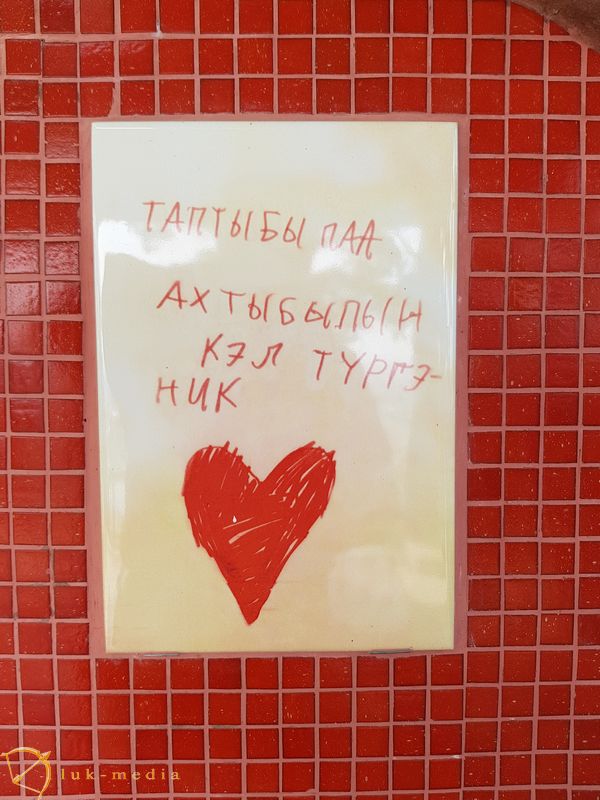 ТАПТЫБЫ ПАА
АХТЫБЫПЫН
КЭЛ ТҮРГЭ-
НИК
luk-media